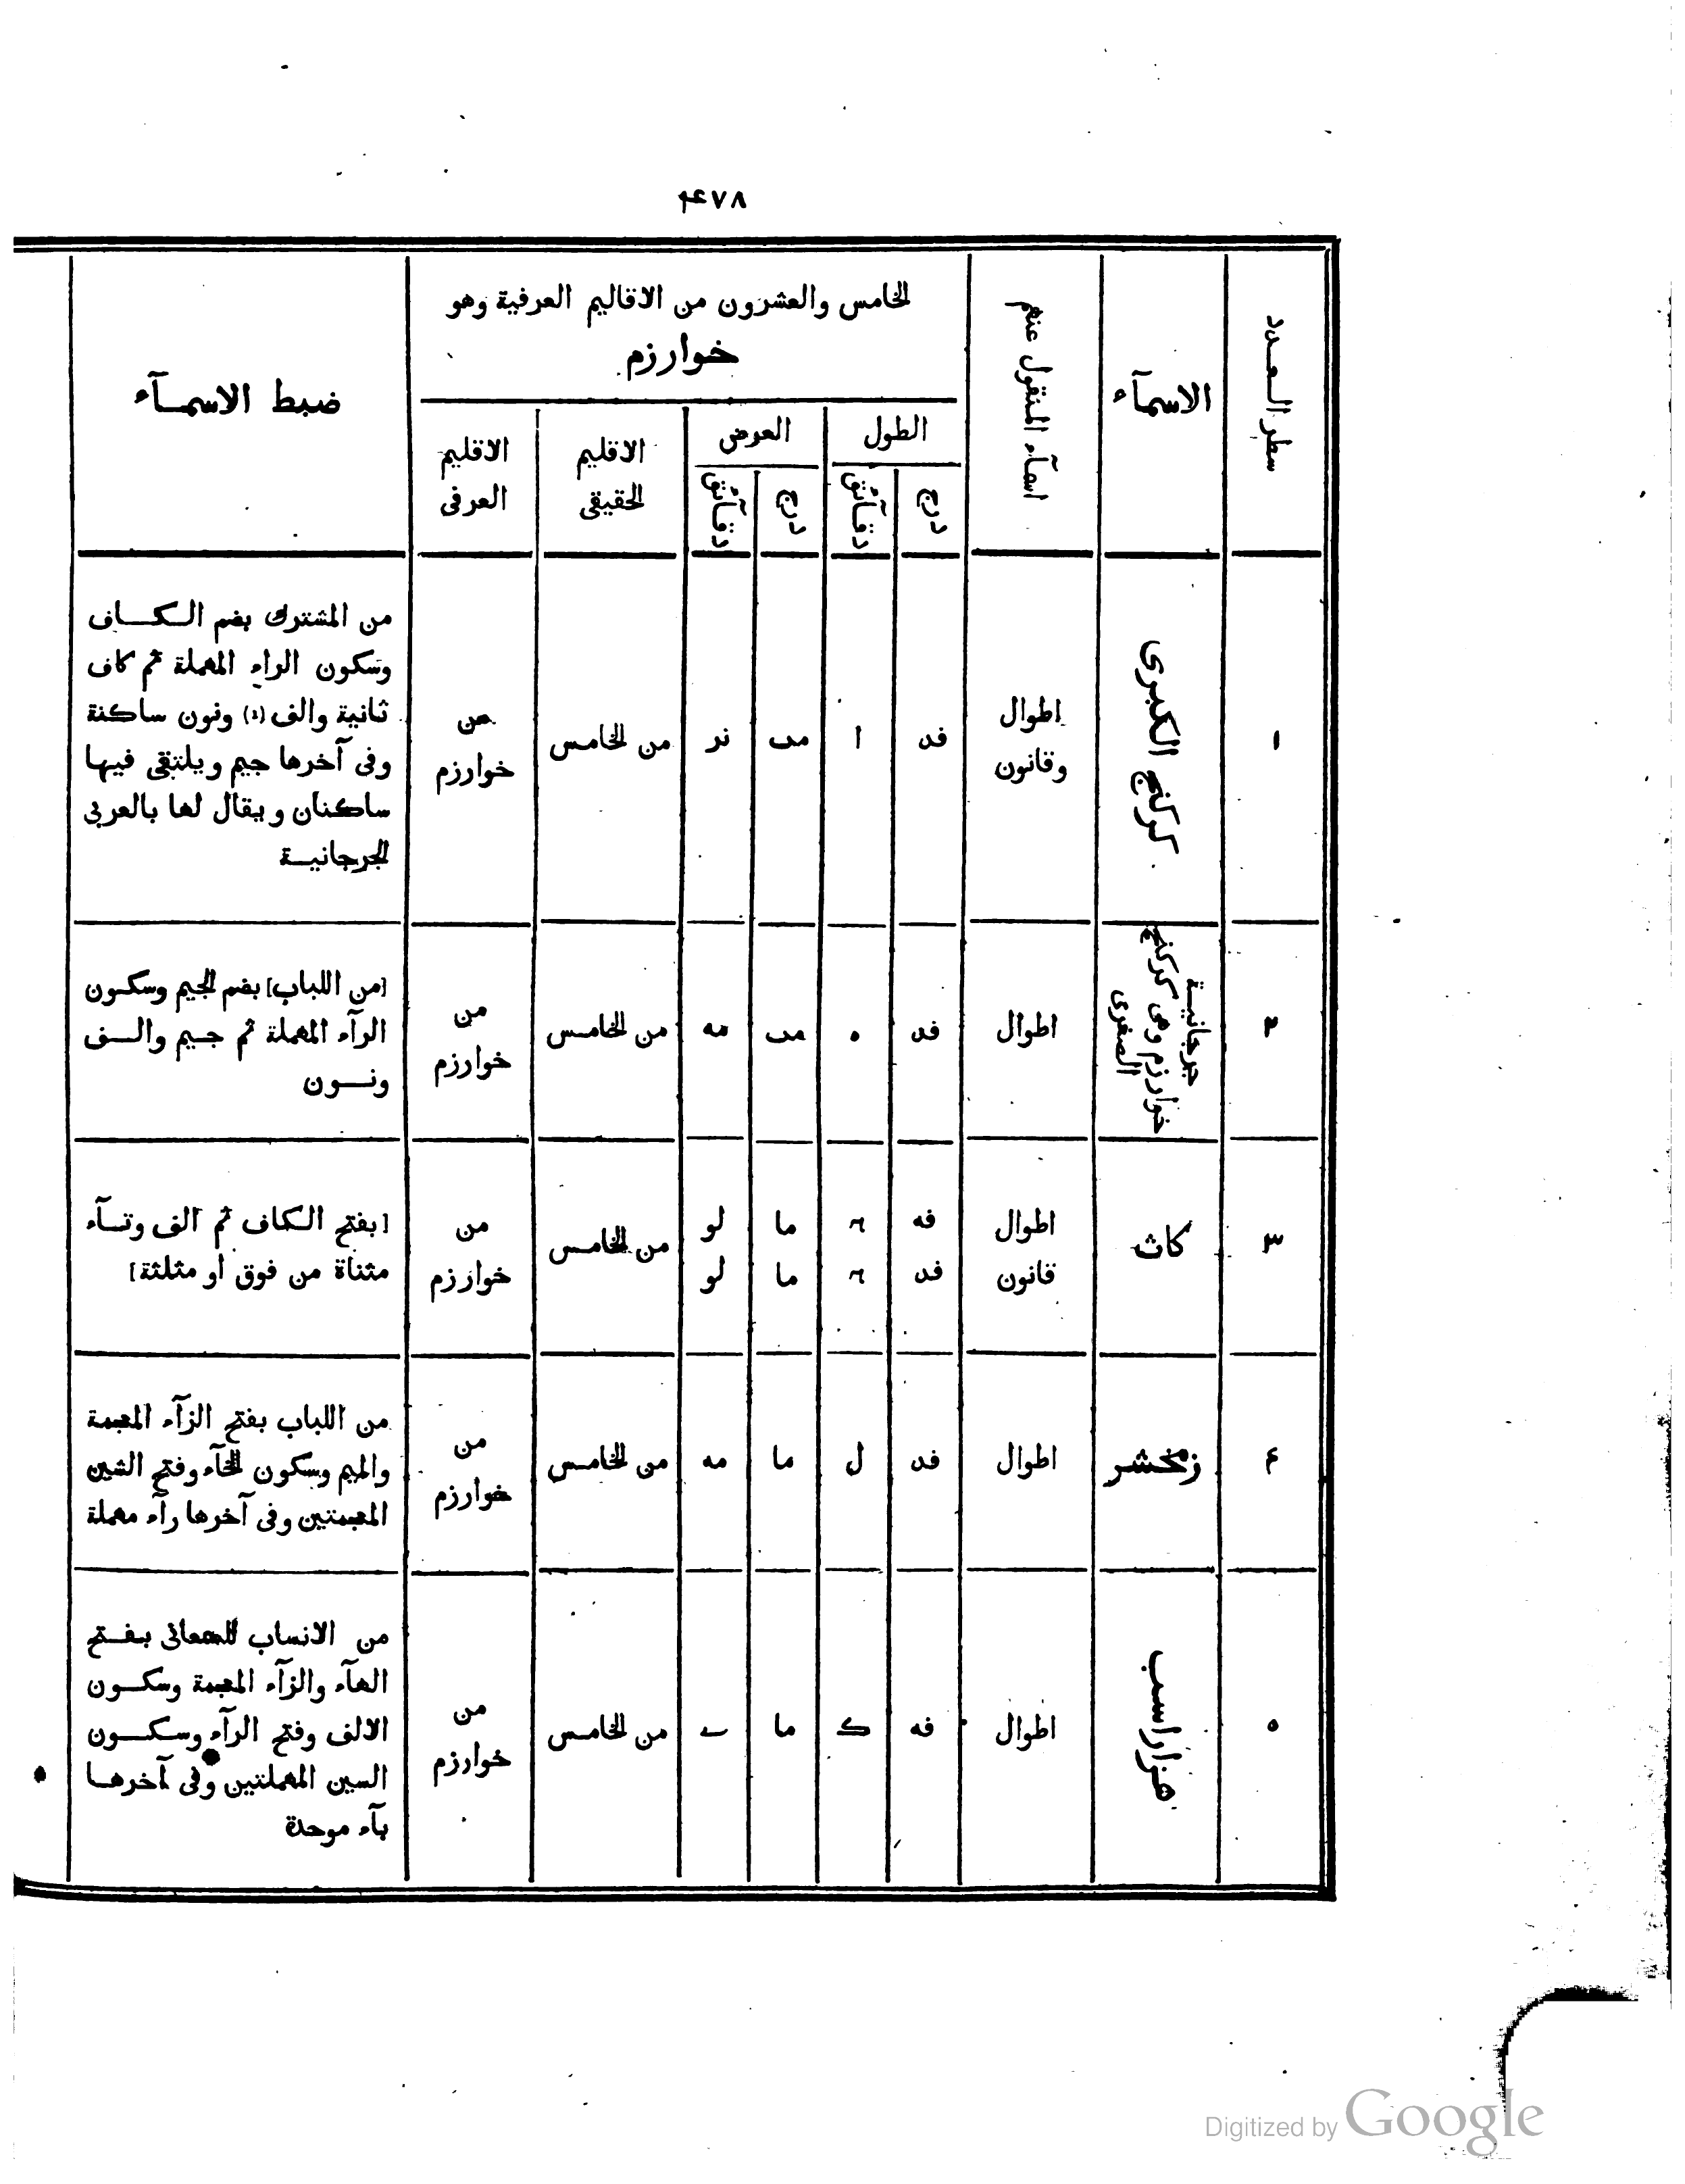 ٤٧٨
سطر العدد
الاسمآء
اسمآء المنقول عنهم
الخامس والعشرون من الاقاليم العرفية وهو
خوارزم
الطول
درج
دقآئق
العرض
درج
دقآئق
الاقليم
الحقيقى
الاقليم
العرفى
ضبط الاسمـآء
١
كركنج الكبرى
اطوال
وقانون
فد
ا
مب
نر
من الخامس
من
خوارزم
من المشترك بضم الـكـاف
وسكون الراء المهملة ثم كاف
ثانية والف (١) ونون ساكنة
وفى آخرها جيم ويلتقى فيها
ساكنان ويقال لها بالعربى
الجرجانيـة
٢
جرجانيـة
خوارزم وهى كركنج
الصغرى
اطوال
فد
ه
مب
مه
من الخامس
من
خوارزم
[من اللباب] بضم الجيم وسكون
الرآء المهملة ثم جـيم والـف
ونـون
٣
كاث
اطوال
قانون
فه
فد
ما
ما
لو
لو
من الخامس
من
خوارزم
[بفتح الـكاف ثم الف وتـآء
مثناة من فوق أو مثلثة]
٤
زمخشر
اطوال
فد
ل
ما
مه
من الخامس
من
خوارزم
من اللباب بفتح الزآء المعجمة
والميم وسكون الخآء وفتح الشين
المعجمتين وفى آخرها رآء مهملة
٥
هزاراسب
اطوال
فه
ك
ما
ى
من الخامس
من
خوارزم
من الانساب للسمعانى بـفـتح
الهآء والزآء المعجمة وسكـون
الالف وفتح الرآء وسـكـون
السين المهملتين وفى آخرهـا
بآء موحدة
Digitized by Google